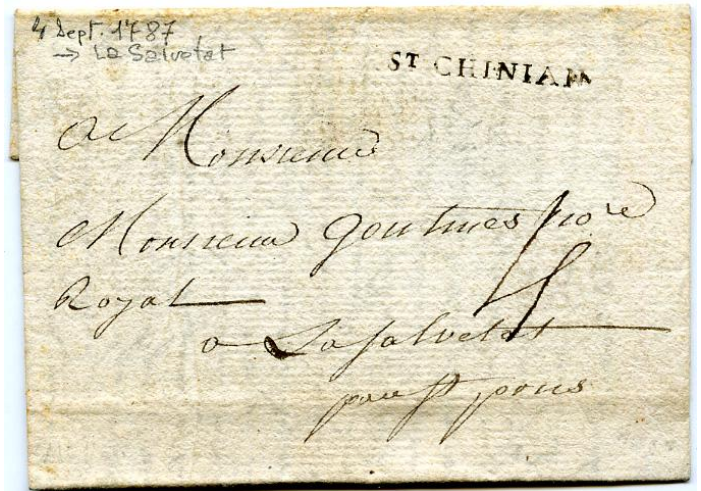 4 Sept. 1787
→ La Salvetat
ST CHINIAN
A Monsieur
Monsieur goutines No.re
Royal
a La Salvetat
par st pons